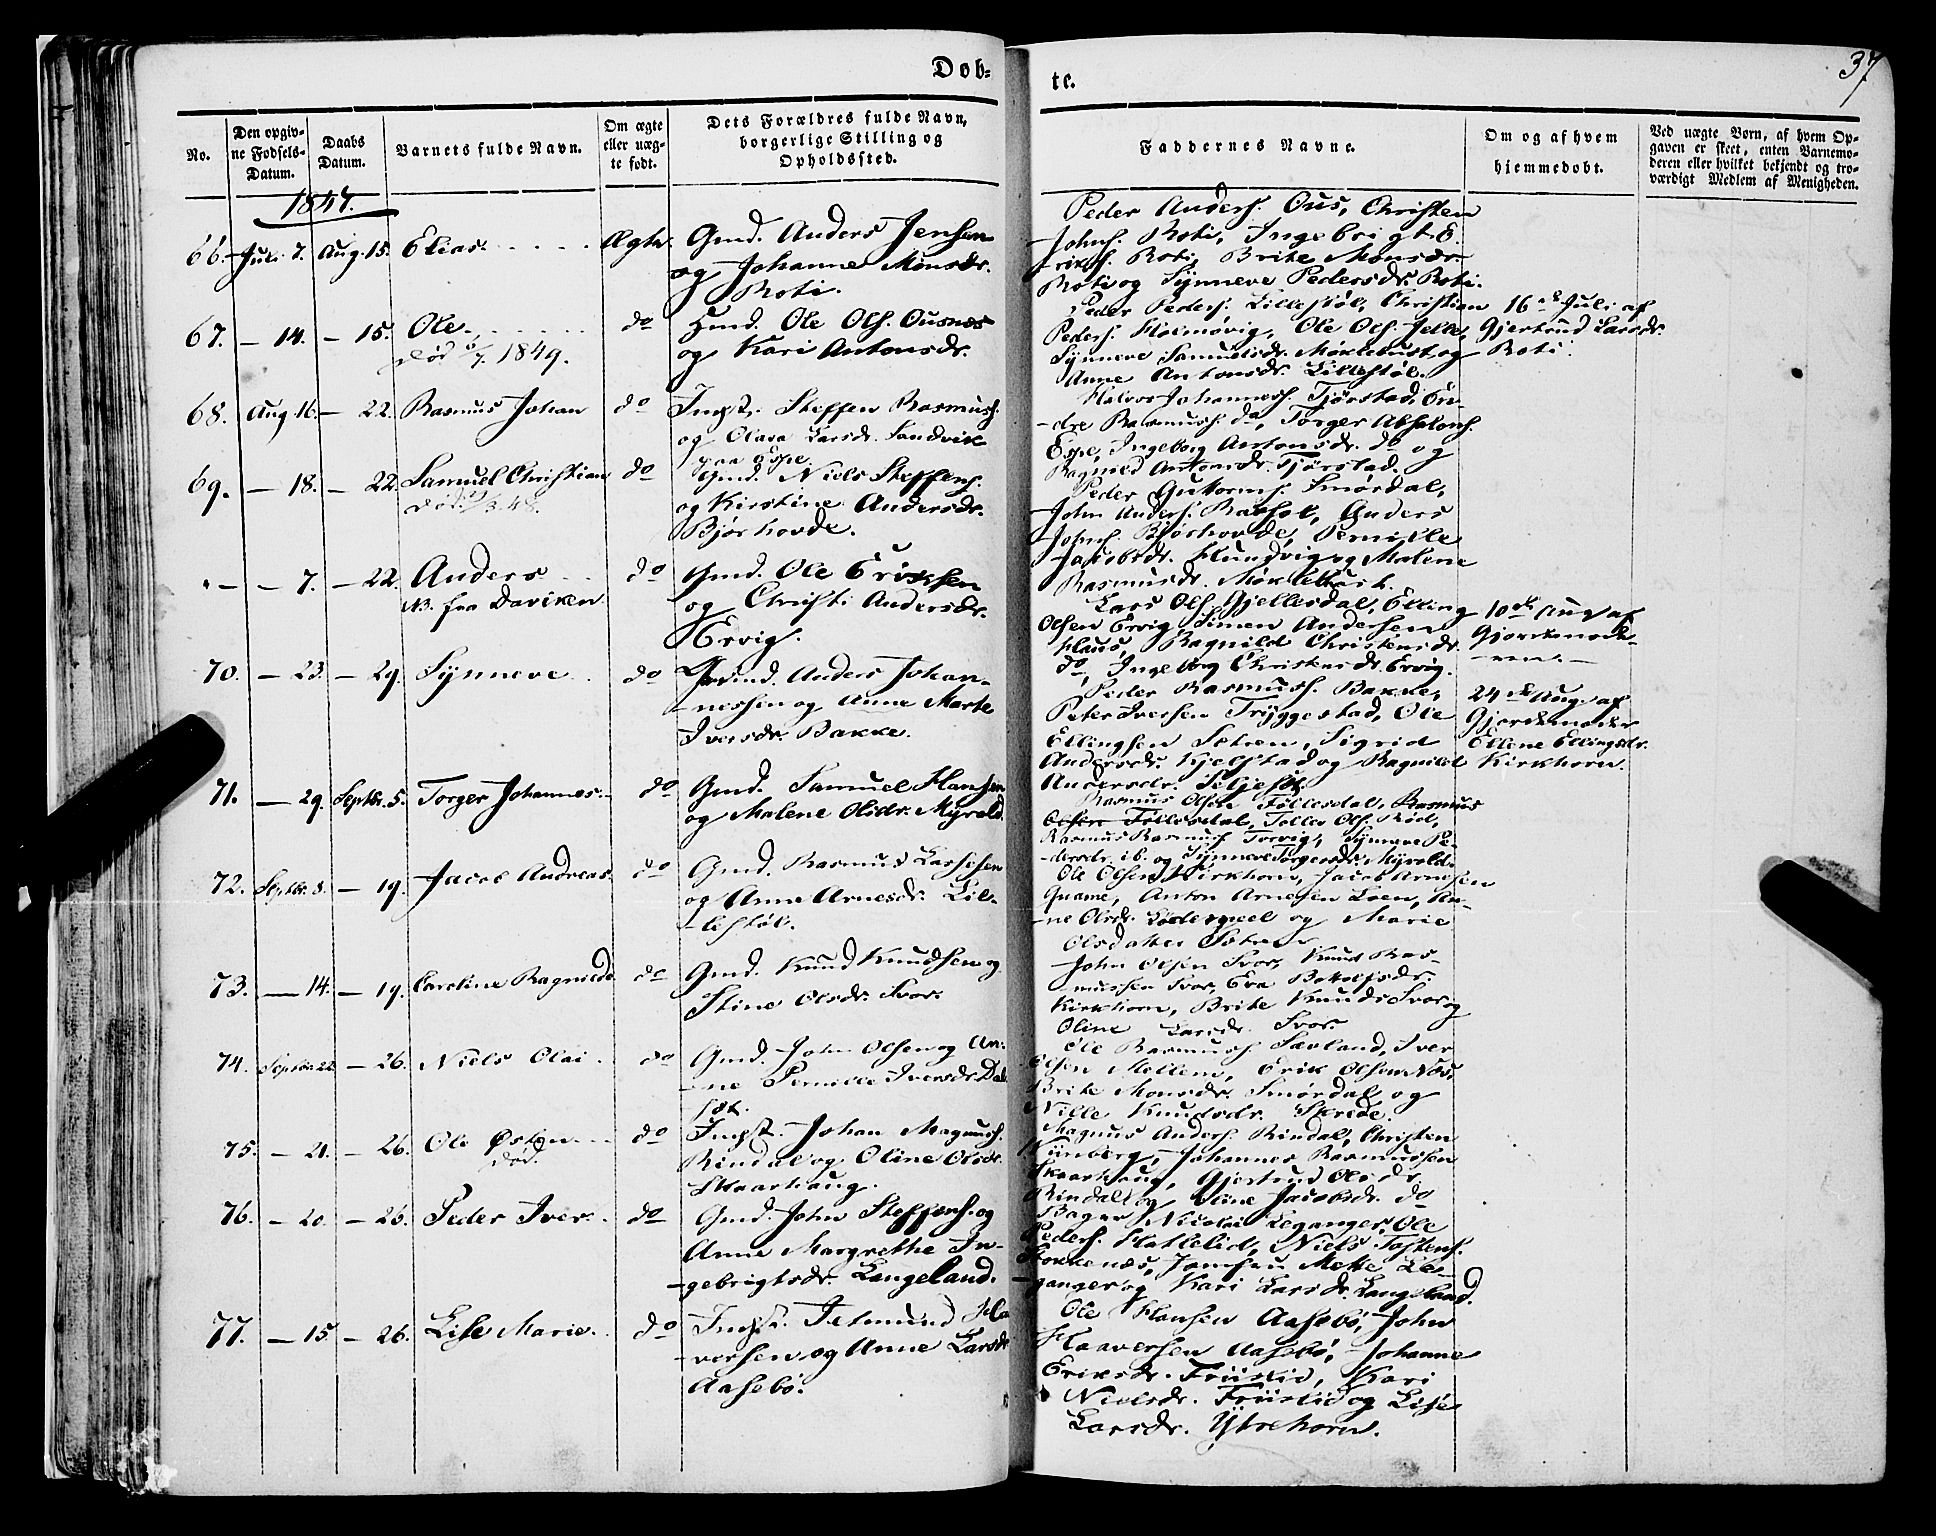 Døb=
te.
37
No.
Den opgiv-
ne Fødsels-
Datum.
Daabs
Datum.
Barnets fulde Navn.
Om ægte
eller uæg-
te født.
Dets Forældres fulde Navn,
borgerlige Stilling og
Opholdssted.
Faddernes Navne.
Om og af hvem
hjemmedøbt.
Ved uægte Børn, af hvem Op-
gaven er skeet, enten Barnemo-
deren eller hvilket bekjendt og tro-
værdigt Medlem af Menigheden.
1847.
66. Juli 7. Aug. 15. Elias Ægte Gmd. Anders Jensen
og Johanne Monsdr.
Roti.
Peder Anders. Ous, Christen
Johns. Roti, Ingebrigt E-
riks. Roti, Brite Monsdr.
Roti og Synneve Pedersdr. Roti.
67. - 14. - 15. Ole do Hmd. Ole Ols. Ousnes
Død 1849. og Kari Antonsdr.
Peder Peders. Lillestøl, Christian
Peders. Holmøvig, Ole Ols. Jelle,
Synneve Samuelsdr. Møklebust og
Anne Antonsdr. Lillestøl.
16de Juli af
Gjertrud Larsdr.
Roti.
68. Aug. 16. - 22. Rasmus Johan do Inpst. Steffen Rasmus.
og Olava Larsdr. Sandvik
paa Espe
Johannes. Tjørstad,
-dre Rasmuss. do, Torger Absalons.
Espe, Ingeborg Antonsdr. do og
Ragnild Antonsdr. Tjørstad.
69. - 18. - 22. Samuel Christian do Gmd. Niels Steffens.
Død 48. og Kirstine Andersdr.
Bjørhovde.
Peder Guttorms. Smørdal,
John Anders. Anders
Johns. Bjørhovde, Pernille
Jakobsdr. Hundvig og Malene
Rasmusdr. Møklebust.
" - - 7. - 22. Anders do Gmd. Ole Eriksen
NB. fra Daviken og Christi Andersdr.
Ervig.
Lars Ols. Gjellesdal, Elling
Olsen Ervig, Simen Andersen
Haus, Ragnild Christensdr.
do, Ingeborg Christensdr. Ervig.
10de Aug. af
Gjordemode-
-ren.-
70. - 23. - 29. Synneve do Gmd. Anders Johan-
-nessen og Anne Marte
Iversdr. Bakke.
Peder Rasmuss. Bakke,
Peter Iversen Tryggestad, Ole
Ellingsen Sætren, Sigrid
Andersdr. Kjelstad og Ragnild
Andersdr. Seljeset.
24de Aug. af
Gjordemoder
Ellene Ellingsdr.
Kirkhorn.
71. - 29. Septbr. 5. Torger Johannes do Gmd. Samuel Hansen
og Malene Olsdr. Myrold.
Rasmus Olsen Follesdal, Rasmus
Olsen Follesdal, Tollev Ols. Rød,
Rasmus Rasmuss. Torvig, Synneve Pe-
-dersdr. ib. og Synneve Torgersdr. Myrold.
72. Septbr. 8. - 19. Jacob Andreas do Gmd. Rasmus Lassesen
og Anne Arnesdr. Lil-
-lestøl.
Ole Olsen Kirkhorn, Jacob Arnesen
Quame, Anton Arnesen Loen, An-
-ne Olsdr. og Marie
Olsdatter Sætren
73. - 14. - 19. Caroline Ragnilde do Gmd. Knud Knudsen og
Stine Olsdr. Svor.
John Olsen Svor, Knud Ras-
mussen Svor, Eva Botolfsdr.
Kirkhorn, Brite Knudsdr. Svor og
Oline Larsdr. Svor.
74. Septbr. 22. - 26. Niels Olai do Gmd. John Olsen og An-
-ne Pernille Iversdr. Dal-
set.
Ole Rasmuss. Sævland, Iver
Olsen Mellem, Erik Olsen Nos,
Brite Monsdr. Smørdal og
Nille Knudsdr. Skrede.
75. - 21. - 26. Ole Østen do Inpst. Johan Magnus.
død. Rindal og Oline Olsdr.
Skaarhaug.
Magnus Anders. Rindal, Christen
Johannes Rasmussen
Skaarhaug, Gjertrud Olsdr.
Rindal og Oline Jacobsdr. do
76. - 20. - 26. Peder Iver do Gmd. John Steffens. og
Anne Margrethe In-
-gebrigtsdr. Langeland.
Bager Nicolai Leganger, Ole
Peders. Hatlelid, Niels Tostens.
Stokkenes, Jomfru Mette Le-
-ganger og Kari Larsdr. Langeland.
77. - 15. - 26. Lise Marie do Inpst. Jetmund Ha
-versen og Anne Larsdr.
Aasebø.
Ole Hansen Aasebø, John
Haaversen Aasebø, Johanne
Eriksdr. Friislid, Kari
Nielsdr. Friislid og Lise
Larsdr. Ytrehorn.